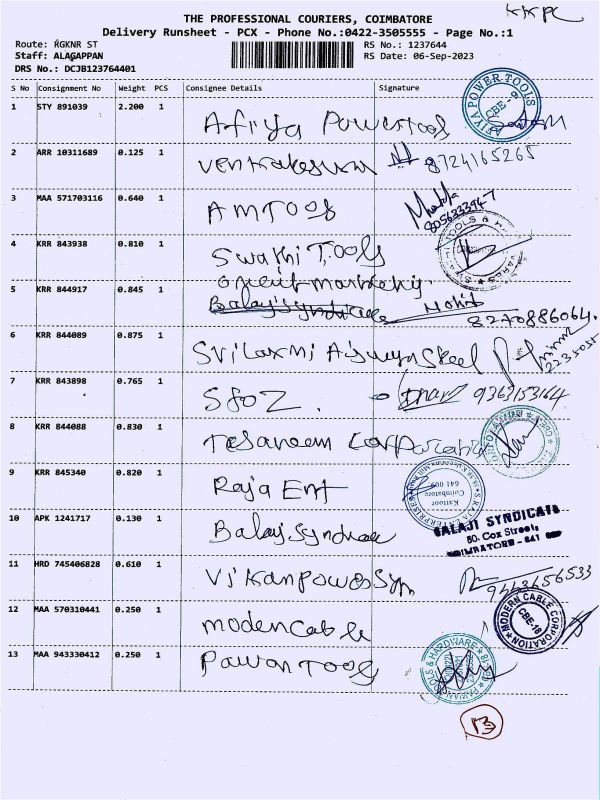 KKPC
THE PROFESSIONAL COURIERS, COIMBATORE
Delivery Runsheet - PCX - Phone No.:0422-3505555 - Page No.:1
Route: RGKNR ST RS No.: 1237644
Staff: ALAGAPPAN RS Date: 06-Sep-2023
DRS No.: DCJB123764401
S No Consignment No Weight PCS Consignee Details Signature
1 STY 891039 2.200 1 Afiya Powertools AFIYA POWER TOOLS CBE-9
2 ARR 10311689 0.125 1 8724165265
3 MAA 571703116 0.640 1 AMTools
4 KRR 843938 0.810 1 Swathi Tools TOOLS &
5 KRR 844917 0.845 1 Orient marketing Balaji Syndicate Mohit 8270886064.
6 KRR 844089 0.875 1 Sri Laxmi Steel
7 KRR 843898 0.765 1 9363153164
8 KRR 844088 0.830 1 Corporation
9 KRR 845340 0.820 1 Raja Ent Kattoor Coimbatore 641 009
10 APK 1241717 0.130 1 Balaji Syndicate BALAJI SYNDICATE
80. Cox Street,
COIMBATORE - 641
11 HRD 745406828 0.610 1 9443656533
12 MAA 570310441 0.250 1 Modern Cable MODERN CABLE CORPORATION CBE-18
13 MAA 943330412 0.250 1 Pawan Tools TOOLS & HARDWARE
13